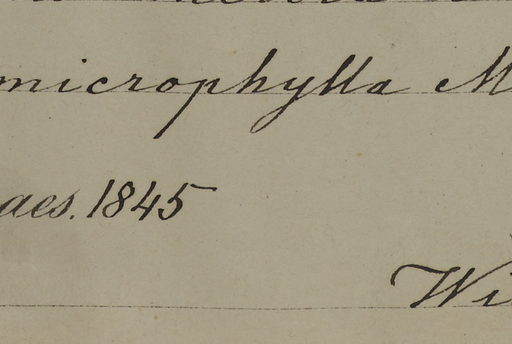 microphylla M
aes. 1845
Wi